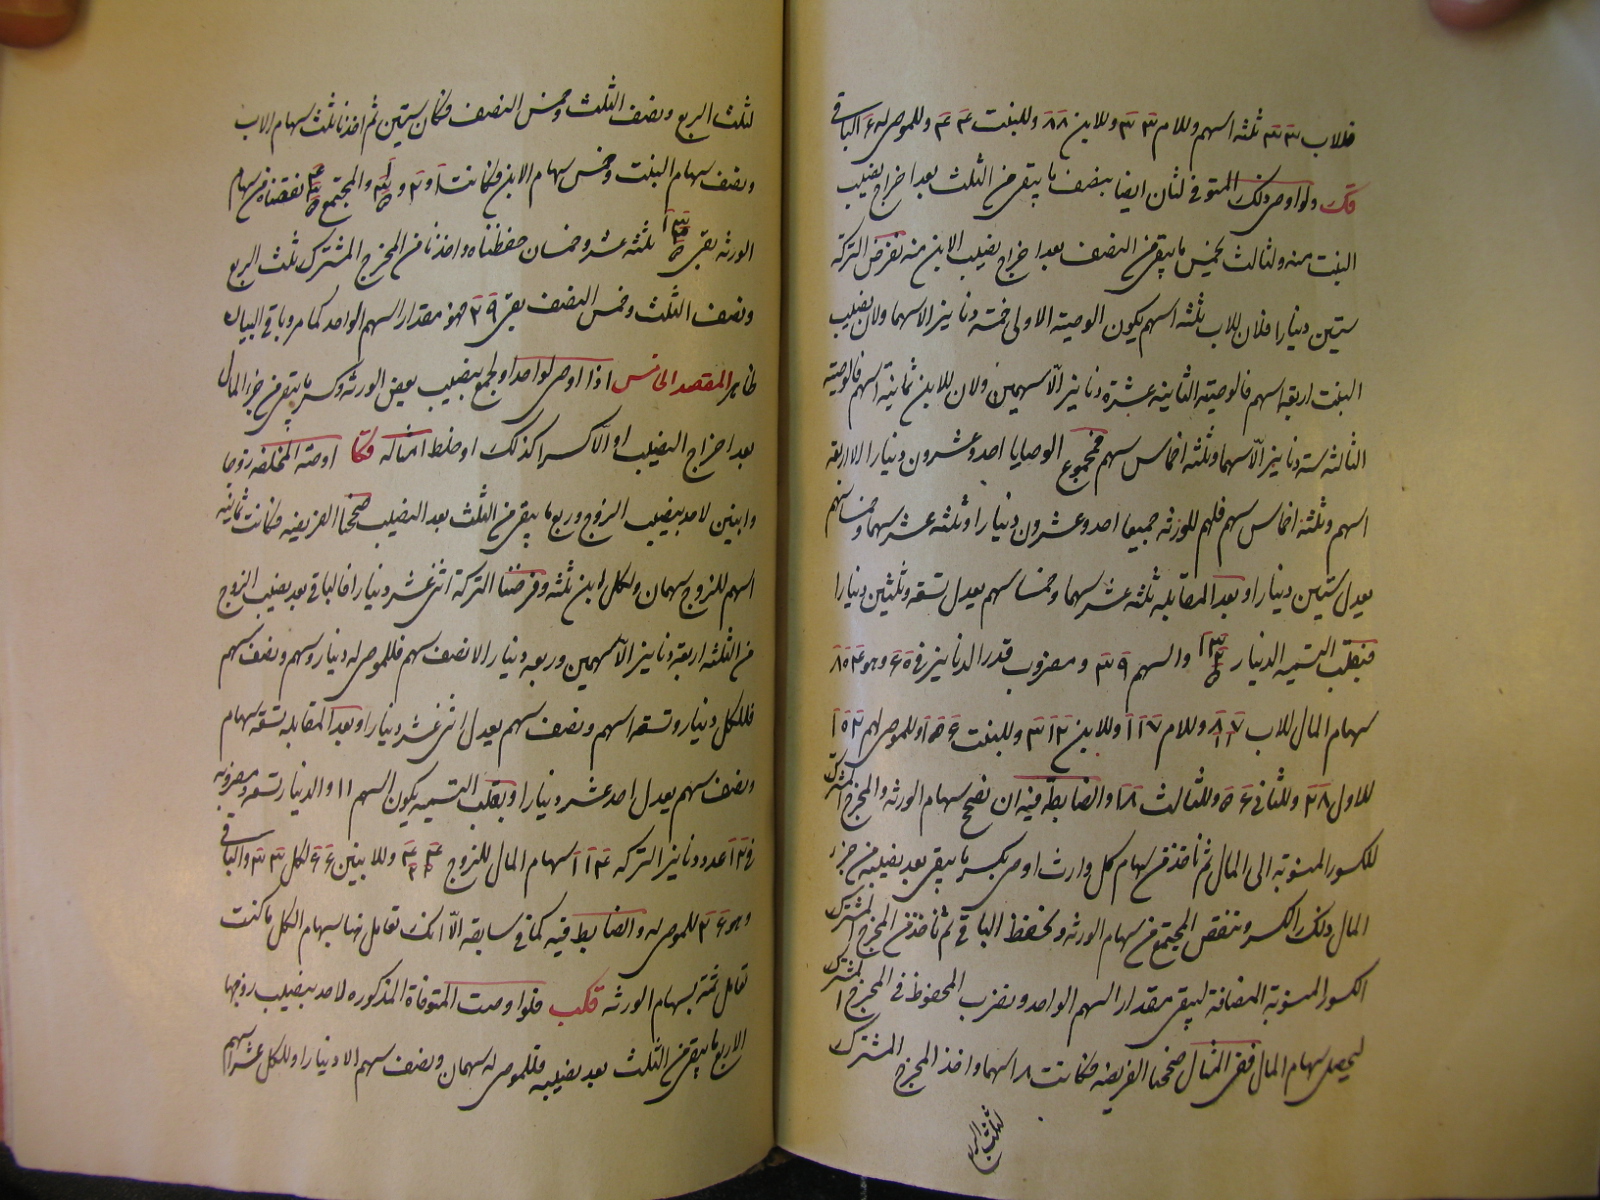 فللاب ٣٣ ثلثه اسهم وللام ٣٣ وللابن ٨٨ وللبنت ٤٤ وللموصى له ٤ الباقى
قك ولو اوصى ذلك المتوفى لثان ايضا بنصف ما يبقى من الثلث بعد اخراج نصيب
البنت منه ولثالث بخمس ما يبقى من النصف بعد اخراج نصيب الابن منه نفرض التركة
ستين دينارا فلان للاب ثلثه اسهم يكون الوصيه الاولى خمسة دنانير الا سهما ولان نصيب
البنت اربعه اسهم فالوصيته الثانيه عشرة دنانير الا سهمين ولان للابن ثمانية اسهم فالوصيته
الثالثه ستة دنانير الا سهما وثلثه اخماس سهم فمجموع الوصايا احد وعشرون دينارا الا اربعة
اسهم وثلثة اخماس سهم فلهم للورثه جميعا احد وعشرون دينارا وثلثه عشر سهما وخمسا سهم
يعدل ستين دينارا وبعد المقابله ثلثه عشر سهما وخمسا سهم يعدل تسعه وثلثين دينارا
فبقلب التسميه الدينار والسهم ٣٩ ومضروب قدر الدنانير فى
سهام المال للاب ١١٧ وللام ١١٧ وللابن ٣١٢ وللبنت ١٥٦ وللموصى لهم ١٥٢
للاول ٢٨ وللثانى ٥٦ وللثالث ٦٨ والضابطة فيه ان تصحح سهام الورثه والمخرج المشترك
للكسور المنسوبة الى المال ثم تأخذ من سهام كل وارث اوصى بكسر ما يبقى بعد نصيبه من جزء
المال ذلك الكسر وتنقص المجتمع من سهام الورثه وتحفظ الباقى ثم تأخذ من المخرج المشترك
الكسور المنسوبة المضافة ليبقى مقدار السهم الواحد وتضرب المحفوظ فى المخرج المشترك
ليحصل سهام المال ففى المثال صححنا الفريضه فكانت ١٨ سهما واخذ المخرج المشترك
لثلث الربع
لثلث الربع ونصف الثلث وخمس النصف فكان ستين ثم اخذنا ثلث سهام الاب
ونصف سهام البنت وخمس سهام الابن فكانت ١ و ٢ و والمجتمع نقصناه من سهام
الورثه بقى ثلثه عشر وخمسان حفظناه واخذنا من المخرج المشترك ثلث الربع
ونصف الثلث وخمس النصف بقى ٣٩ فهو مقدار السهم الواحد كما مر وباقى البيان
ظاهر المقصد الخامس اذا اوصى لواحد او لجمع بنصيب بعض الورثه وكسر ما يبقى من جزء المال
بعد اخراج النصيب او الا كسرا كذلك او خلط امثاله قكا اوصت المخلفه زوجا
وابنين لاحد بنصيب الزوج وربع ما يبقى من الثلث بعد النصيب صححنا الفريضه فكانت ثمانية
اسهم للزوج سهمان ولكل ابن ثلثه وفرضنا التركة اثنى عشر دينارا فالباقى بعد نصيب الزوج
من الثلثه اربعة دنانير الا سهمين وربعه دينار الا نصف سهم فللموصى له دينار وسهم ونصف سهم
فللكل دينار وتسعه اسهم ونصف سهم يعدل اثنى عشر دينارا وبعد المقابله تسعه سهام
ونصف سهم يعدل احد عشر دينارا وبقلب التسميه يكون السهم ١١ والدينار تسعه ونصف ومضروبه
فى ١٢ عدد دنانير التركه ١١٤ سهام المال للزوج ٢٢ وللابنين ٦٦ لكل ٣٣ والباقى
وهو ٢٦ للموصى له والضابط فيه كما فى سابقه الا انك تعامل ههنا بسهام الكل ما كنت
تعامل ثمة بسهام الورثه قكب فلو اوصت المتوفاة المذكوره لاحد بنصيب زوجها
الا ربع ما يبقى من الثلث بعد نصيبه فللموصى له سهمان ونصف سهم الا دينارا وللكل عشرة اسهم